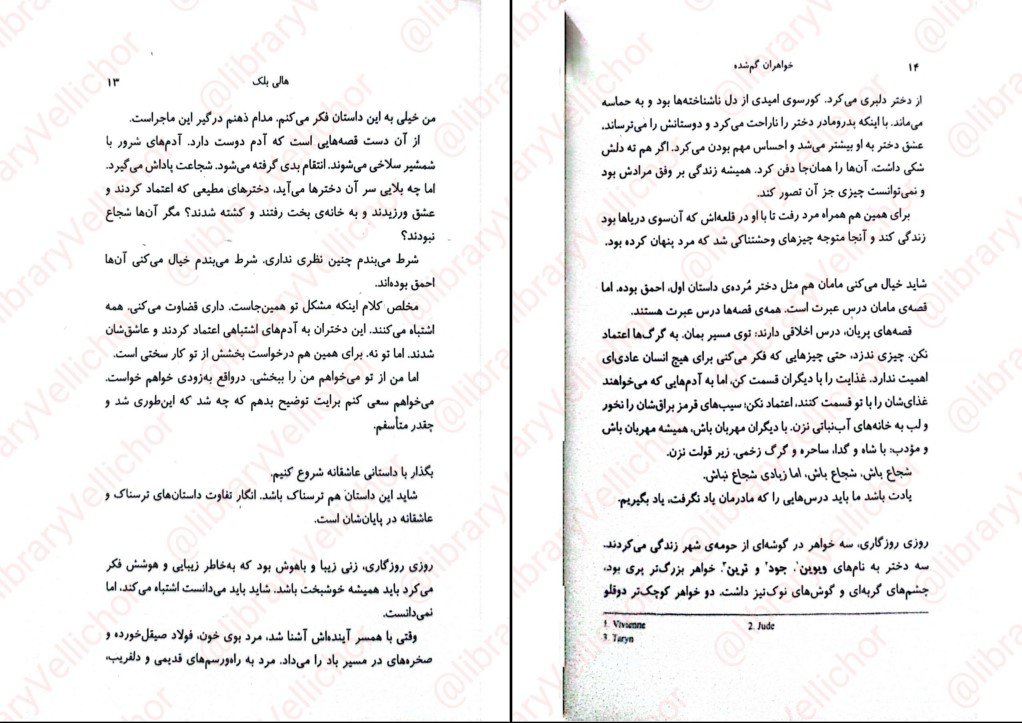 هالی بلک ۱۳
من خیلی به این داستان فکر می‌کنم. مدام ذهنم درگیر این ماجراست.
از آن دست قصه‌هایی است که آدم دوست دارد. آدم‌های شرور با
شمشیر سلاخی می‌شوند. انتقام بدی گرفته می‌شود. شجاعت پاداش می‌گیرد.
اما چه بلایی سر آن دخترها می‌آید، دخترهای مطیعی که اعتماد کردند و
عشق ورزیدند و به خانه‌ی بخت رفتند و کشته شدند؟ مگر آن‌ها شجاع
نبودند؟
شرط می‌بندم چنین نظری نداری. شرط می‌بندم خیال می‌کنی آن‌ها
احمق بوده‌اند.
مخلص کلام اینکه مشکل تو همین‌جاست. داری قضاوت می‌کنی. همه
اشتباه می‌کنند. این دختران به آدم‌های اشتباهی اعتماد کردند و عاشق‌شان
شدند. اما تو نه. برای همین هم درخواست بخشش از تو کار سختی است.
اما من از تو می‌خواهم من را ببخشی. درواقع به‌زودی خواهم خواست.
می‌خواهم سعی کنم برایت توضیح بدهم که چه شد که این‌طوری شد و
چقدر متأسفم.
بگذار با داستانی عاشقانه شروع کنیم.
شاید این داستان هم ترسناک باشد. انگار تفاوت داستان‌های ترسناک و
عاشقانه در پایان‌شان است.
روزی روزگاری، زنی زیبا و باهوش بود که به‌خاطر زیبایی و هوشش فکر
می‌کرد باید همیشه خوشبخت باشد. شاید باید می‌دانست اشتباه می‌کند، اما
نمی‌دانست.
وقتی با همسر آینده‌اش آشنا شد، مرد بوی خون، فولاد صیقل‌خورده و
صخره‌های در مسیر باد را می‌داد. مرد به راه‌ورسم‌های قدیمی و دلفریب،
۱۴ خواهران گم‌شده
از دختر دلبری می‌کرد. کورسوی امیدی از دل ناشناخته‌ها بود و به حماسه
می‌ماند. با اینکه پدرومادر دختر را ناراحت می‌کرد و دوستانش را می‌ترساند،
عشق دختر به او بیشتر می‌شد و احساس مهم بودن می‌کرد. اگر هم ته دلش
شکی داشت، آن‌ها را همان‌جا دفن کرد. همیشه زندگی بر وفق مرادش بود
و نمی‌توانست چیزی جز آن تصور کند.
برای همین هم همراه مرد رفت تا با او در قلعه‌اش که آن‌سوی دریاها بود
زندگی کند و آنجا متوجه چیزهای وحشتناکی شد که مرد پنهان کرده بود.
شاید خیال می‌کنی مامان هم مثل دختر مُرده‌ی داستان اول، احمق بوده. اما
قصه‌ی مامان درس عبرت است. همه‌ی قصه‌ها درس عبرت هستند.
قصه‌های پریان، درس اخلاقی دارند: توی مسیر بمان. به گرگ‌ها اعتماد
نکن. چیزی ندزد، حتی چیزهایی که فکر می‌کنی برای هیچ انسان عادی‌ای
اهمیت ندارد. غذایت را با دیگران قسمت کن، اما به آدم‌هایی که می‌خواهند
غذای‌شان را با تو قسمت کنند، اعتماد نکن؛ سیب‌های قرمز براق‌شان را نخور
و لب به خانه‌های آب‌نباتی نزن. با دیگران مهربان باش، همیشه مهربان باش
و مؤدب: با شاه و گدا، ساحره و گرگ زخمی. زیر قولت نزن.
شجاع باش. شجاع باش، اما زیادی شجاع نباش.
یادت باشد ما باید درس‌هایی را که مادرمان یاد نگرفت، یاد بگیریم.
روزی روزگاری، سه خواهر در گوشه‌ای از حومه‌ی شهر زندگی می‌کردند.
سه دختر به نام‌های ویوین¹، جود² و ترین³. خواهر بزرگ‌تر پری بود،
چشم‌های گربه‌ای و گوش‌های نوک‌تیز داشت. دو خواهر کوچک‌تر دوقلو
1. Vivienne 2. Jude
3. Taryn
@libraryVellichor